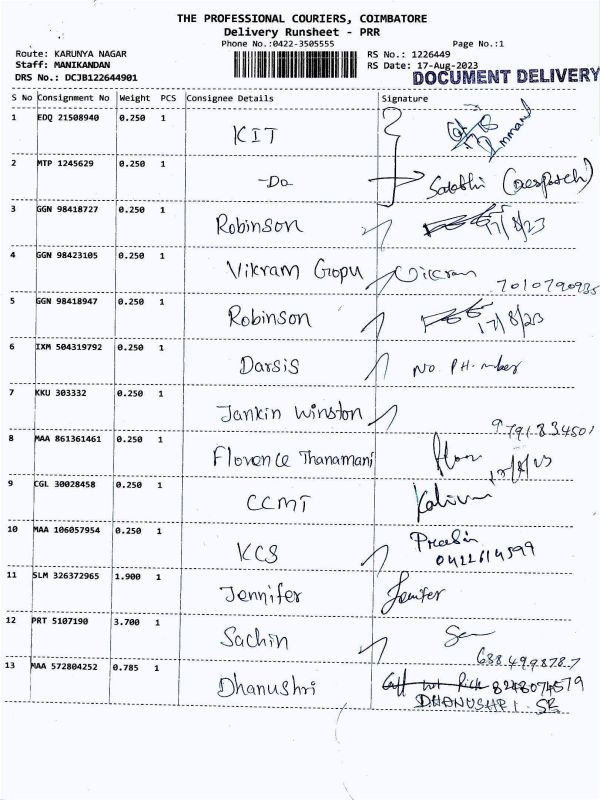 THE PROFESSIONAL COURIERS, COIMBATORE
Delivery Runsheet - PRR
Phone No.:0422-3505555 Page No.:1
Route: KARUNYA NAGAR RS No.: 1226449
Staff: MANIKANDAN RS Date: 17-Aug-2023
DRS No.: DCJB122644901 DOCUMENT DELIVERY
S No Consignment No Weight PCS Consignee Details Signature
1 EDQ 21508940 0.250 1 KIT
2 MTP 1245629 0.250 1 -Do
3 GGN 98418727 0.250 1 Robinson 17/8/23
4 GGN 98423105 0.250 1 Vikram Gopu Vikram
7010790935
5 GGN 98418947 0.250 1 Robinson 17/8/23
6 IXM 504319792 0.250 1 Darsis No PH. number
7 KKU 303332 0.250 1 Jankin Winston
9791834501
8 MAA 861361461 0.250 1 Florence Thanamani
9 CGL 30028458 0.250 1 CCMT
10 MAA 106057954 0.250 1 KCS
11 SLM 326372965 1.900 1 Jennifer Jenifer
12 PRT 5107190 3.700 1 Sachin
13 MAA 572804252 0.785 1 Dhanushri 8248074579
DHANUSHRI SR